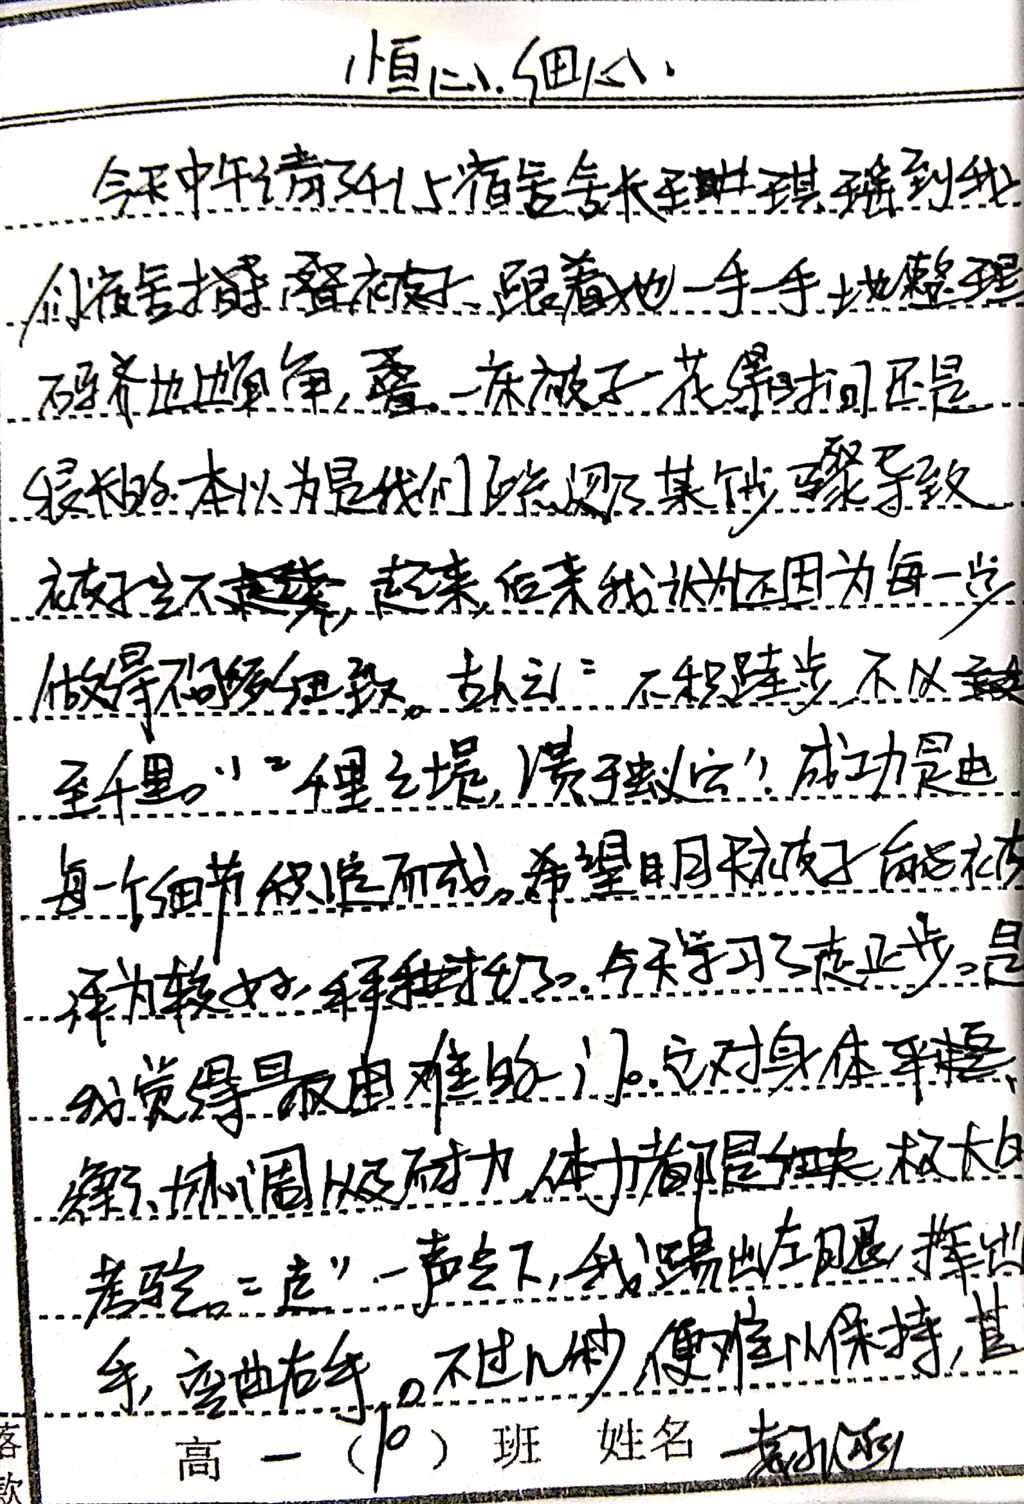 恒心、细心.
今天中午请了415宿舍舍长王琪瑶到我
们宿舍指导叠被子、跟着她一手一手地整理
码齐边边角角,叠一床被子花得时间还是
很长的.本以为是我们疏忽了某个步骤导致
被子立不起来,后来我认为还因为每一步
做得不够细致。古人云:"不积跬步不以
至千里。""千里之堤,溃于蚁穴".成功是由
每一个细节积造而成。希望明天被子能被
评为较好,拜托了.今天学习了走正步。是
我觉得最困难的一门.它对身体平稳、
协调以及耐力,体力都是极大的
考验。"走"一声令下,我踢出左腿,挥出
手,弯曲右手。不过几秒,便难以保持,甚
高一(10)班 姓名
落款